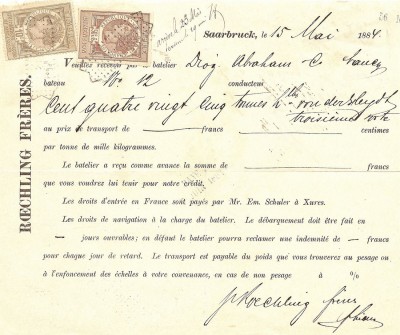 Saarbruck, le 15 Mai 1884
Veuillez recevoir par le batelier Diog Abraham C. Nancy
bateau No 12 conducteur
Cent quatre vingt cinq tonnes von der Heydt
troisième sorte
au prix de transport de francs centimes
par tonne de mille kilogrammes.
Le batelier a reçu comme avance la somme de francs
que vous voudrez lui tenir pour notre crédit.
Les droits d'entrée en France sont payés par Mr. Em. Schuler à Xures.
Les droits de navigation à la charge du batelier. Le débarquement doit être fait en
— jours ouvrables; en défaut le batelier pourra réclamer une indemnité de — francs
pour chaque jour de retard. Le transport est payable du poids que vous trouverez au pesage ou
à l'enfoncement des échelles à votre convenance, en cas de non pesage à %
pRoechling frères
RŒCHLING FRÈRES.